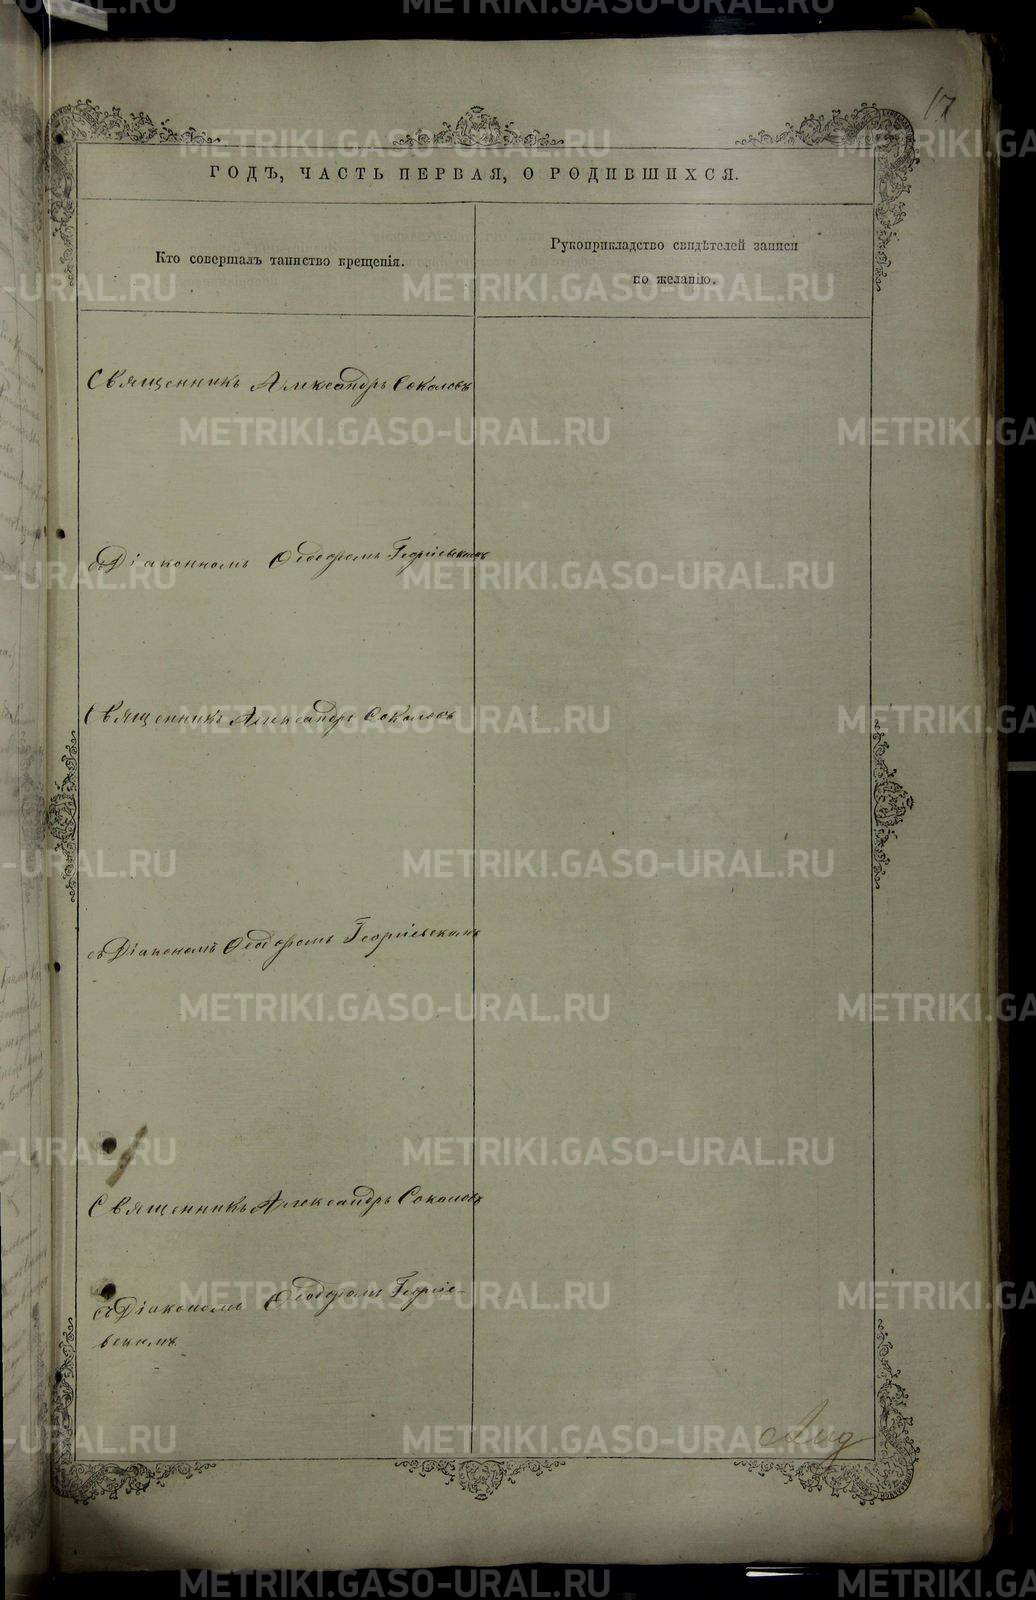 17
ГОДЪ, ЧАСТЬ ПЕРВАЯ, О РОДИВШИХСЯ.
Кто совершалъ таинство крещенія.
Рукоприкладство свидѣтелей записи
по желанію.
Священникъ Александръ Соколовъ
съ Діакономъ Ѳеодоромъ Георгіевскимъ
Священникъ Александръ Соколовъ
съ Діакономъ Ѳеодоромъ Георгіевскимъ
Священникъ Александръ Соколовъ
съ Діакономъ Ѳеодоромъ Георгіе-
вскимъ
METRIKI.GASO-URAL.RU